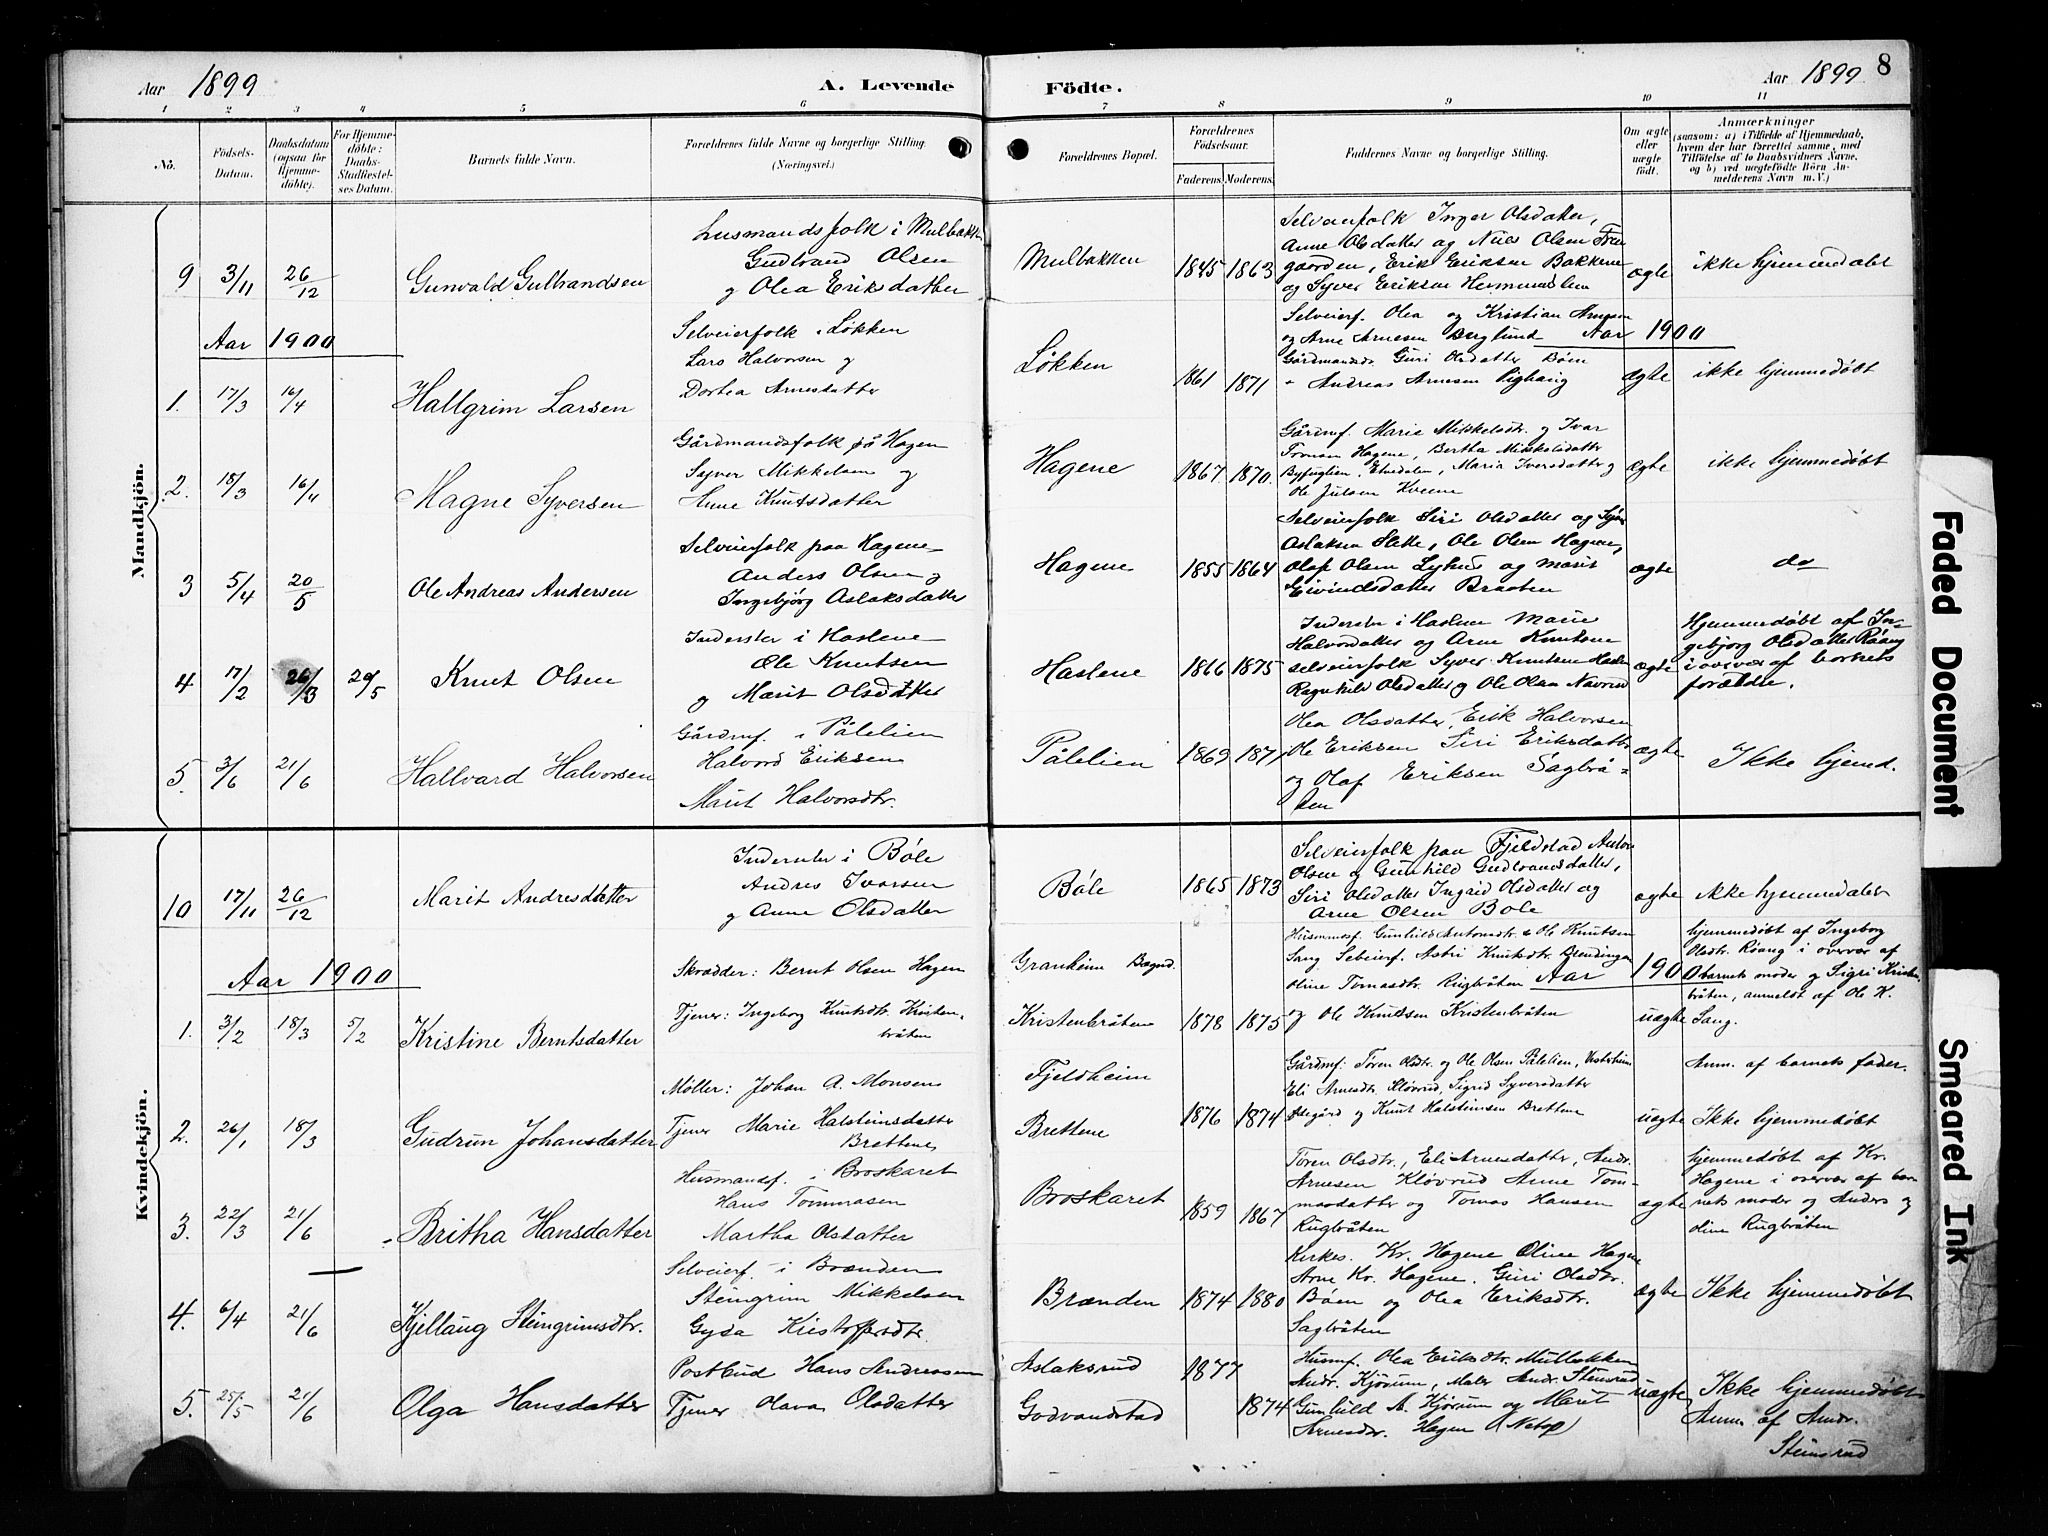 Aar 1899
A. Levende
Födte.
Aar 1899
8
1 2 3 4 5 6 7 8 9 10 11
No.
Födsels-Datum.
Daabsdatum (ogsaa for Hjemmedöbte).
For Hjemmedöbte: Daabs-Stadfæstelses Datum.
Barnets fulde Navn.
Forældrenes fulde Navne og borgerlige Stilling. (Næringsvei.)
Forældrenes Bopæl.
Forældrenes Födselsaar.
Faderens. Moderens.
Faddernes Navne og borgerlige Stilling.
Om ægte eller uægte födt.
Anmærkninger
(saasom: a) i Tilfælde af Hjemmedaab, hvem der har forrettet samme, med Tilföielse af to Daabsvidners Navne, og b) ved uægtefödte Börn Anmelderens Navn m.V.)
Mandkjön.
9 3/11 26/12 Gunvald Gulbrandsen
Husmandsfolk i Mulbakken
Gudbrand Olsen
og Olea Eriksdatter
Mulbakken 1845 1863
Selveierfolk Inger Olsdatter,
Anne Olsdatter og Nils Olsen
gaarden, Erik Eriksen Bakkene
og Syver Eriksen
ægte ikke hjemmedøbt
Aar 1900
1. 17/3 16/4 Hallgrim Larsen
Selveierfolk i Løkken
Lars Halvorsen og
Dorthea Arnesdatter
Løkken 1861 1871
Selveierf. Olea og Kristian Arnesen
og Arne Arnesen Berglund Aar 1900
Gårdmandsd. Guri Olsdatter Bøen
" Andreas Arnesen
ægte ikke hjemmedøbt
2. 18/3 16/4 Magne Syversen
Gårdmandsfolk på Hagen
Syver Mikkelsen og
Anne Knutsdatter
Hagene 1867. 1870.
Gårdmf. Marie Mikkelsdtr. og Ivar
Hagene, Bertha Mikkelsdatter
Byfuglien, Etnedalen, Maria Iversdatter og
Ole Julsen Kveene
ægte ikke hjemmedøbt
3 5/4 20/5 Ole Andreas Andersen
Selveierfolk paa Hagene
Anders Olsen og
Ingebjørg Aslaksdatter
Hagene 1855 1864
Selveierfolk Siri Olsdatter og
Aslaksen Slette, Ole Olsen Hagene,
Olaf Olsen og Marit
Eivindsdatter Braaten
ægte do
4 17/2 26/3 20/5 Knut Olsen
Inderster i Haslene
Ole Knutsen
og Marit Olsdatter
Haslene 1866 1875
Inderster i Haslene Marie
Halvorsdatter og Arne Knutsen
selveierfolk Syver Knutsen Haslene
Ragnhild Olsdatter og Ole Olsen
ægte
Hjemmedøbt af In-
gebjørg Olsdatter Røang
i overvær af barnets
forældre.
5. 3/6 21/6 Hallvard Halvorsen
Gårdmf. i Pålelien
Halvord Eriksen
Marit Halvorsdtr.
Pålelien 1869 1871
Olea Olsdatter, Erik Halvorsen
Ole Eriksen Siri Eriksdatter
og Olaf Eriksen Sagbrå-
ten
ægte Ikke hjemd.
Kvindekjön.
10 17/11 26/12 Marit Andresdatter
Inderster i Bøle
Andres Ivarsen
og Anne Olsdatter
Bøle 1865 1873
Selveierfolk paa Fjeldstad Anton
Olsen og Gunhild Gudbrandsdatter,
Siri Olsdatter Ingrid Olsdatter og
Arne Olsen Bøle
ægte ikke hjemmedøbt
Aar 1900
1. 3/2 18/3 5/2 Kristine Berntsdatter
Skrædder: Bernt Olsen Hagen
Tjener: Ingeborg Knutsdtr. Kristen-
bråten
Granheim Bagnd.
Kristenbråten 1878 1875
Husmandsf. Gunhild Antonsdtr. & Ole Knutsen
Sang Selveierf. Astri Knutsdtr. Brendingen
Oline Tomasdtr. Rugbråten Aar 1900
og Ole Knutsen Kristenbråten
uægte
hjemmedøbt af Ingeborg
Olsdtr. Røang i overvær af
barnets moder og Sigri Kristen-
bråten, anmeldt af Ole K.
Sang.
2. 26/1 18/3 Gudrun Johansdatter
Møller: Johan A. Monsen
Tjener Marie Halsteinsdatter
Brettene
Fjeldheim
Brettene 1876 1874
Gårdmf. Tøren Olsdtr. og Ole Olsen Pålelien, Vesterheim
Eli Arnesdtr. Kløvrud, Sigrid Syversdatter
Ødegård og Knut Halsteinsen Brettene
uægte
Anm. af barnets fader.
Ikke hjemmedøbt
3. 22/3 21/6 Britha Hansdatter
Husmandsf. i Broskaret
Hans Tommasen
Martha Olsdatter
Broskaret 1859 1867
Tøren Olsdtr., Eli Arnesdatter, Andr.
Arnesen Kløvrud Anne Tom-
masdatter og Tomas Hansen
Rugbråten
ægte
hjemmedøbt af Kr.
Hagene i overvær af bar-
nets moder og Anders og
Oline Rugbråten
4. 6/4 21/6 Kjellaug Steingrimsdtr.
Selveierf. i Brænden
Steingrim Mikkelsen
Gyda Kristoffersdtr.
Brænden 1874 1880
Kirkes. Kr. Hagene Oline Hagene
Arne Kr. Hagene. Guri Olsdtr.
Bøen og Olea Eriksdtr.
Sagbråten
ægte Ikke hjemmedøbt
5. 25/5 21/6 Olga Hansdatter
Postbud Hans Andreassen
Tjener Olava Olsdatter
Aslaksrud 1877
Godvandstad 1874
Husmf. Olea Eriksdtr. Mulbakken
Andr. Kjørum, Maler Andr. Stensrud
Gunhild A. Kjørum og Marit
Arnesdtr. Hagen (Netop)
uægte
Ikke hjemmedøbt
Anm. af Andr.
Stensrud
Faded Document
Smeared Ink